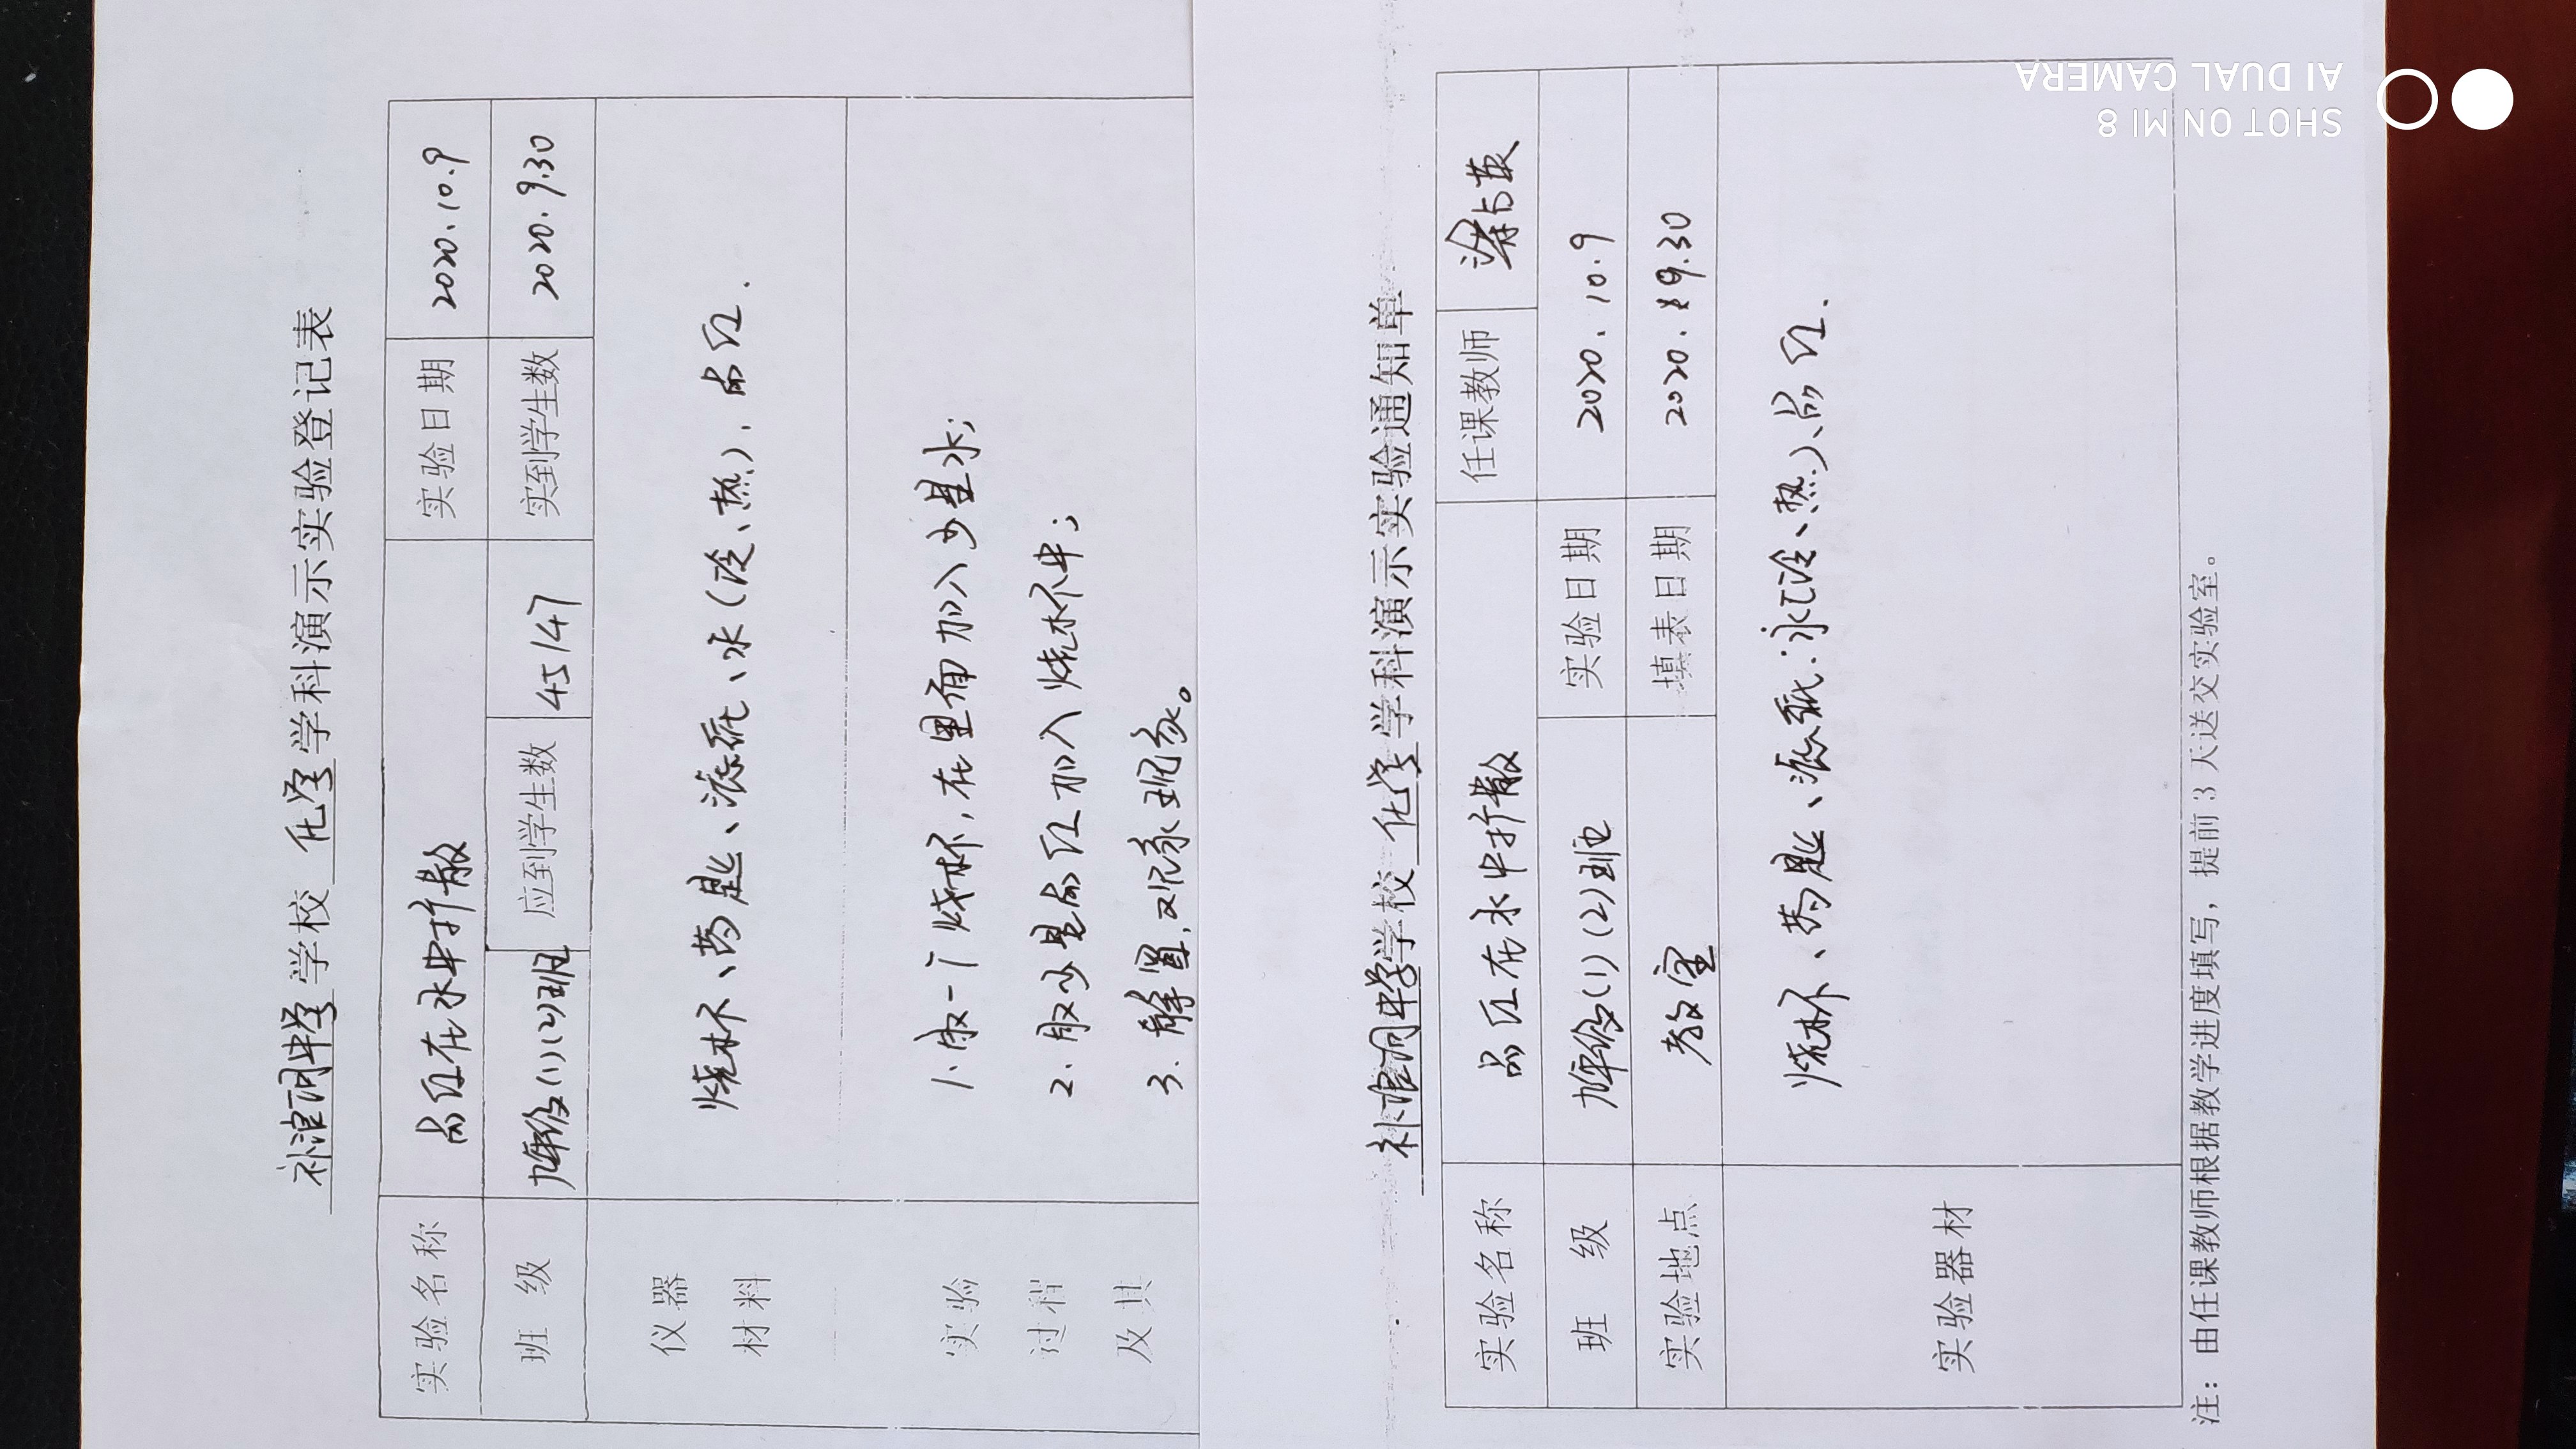 学校 化学 学科演示实验登记表
实验名称 品红在水中扩散 实验日期 2020.10.9
班 级 九年级(1)(2)班 应到学生数 45/47 实到学生数 2020.9.30
仪器 材料 烧杯、药匙、滤纸、水(冷、热)、品红.
实验 过程 及其
1.取一个烧杯,在里面加入少量水;
2.取少量品红加入烧杯中;
3.静置,观察现象。
学校 化学 学科演示实验通知单
实验名称 品红在水中扩散 任课教师
班 级 九年级(1)(2)班 实验日期 2020.10.9
实验地点 教室 填表日期 2020.9.30
实验器材 烧杯、药匙、滤纸、水(冷、热)、品红.
注：由任课教师根据教学进度填写，提前3天送交实验室。
SHOT ON MI 8
AI DUAL CAMERA